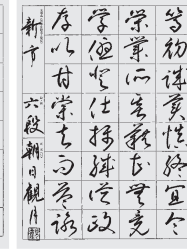 篤初誠美慎終宜令
榮業所基藉甚無竟
學優登仕攝職從政
存以甘棠去而益詠
新市 六段 朝日觀月